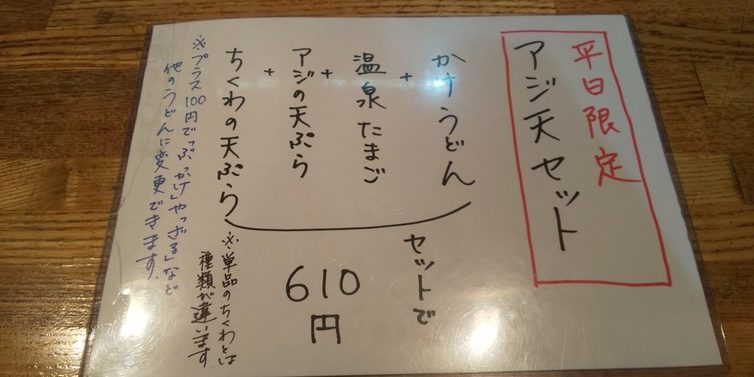 平日限定
アジ天セット
かけうどん
+
温泉たまご
+
アジの天ぷら
+
ちくわの天ぷら
セットで
610
円
※単品のちくわとは
種類が違います
※プラス100円で「ぶっかけ」や「ざる」など
他のうどんに変更できます.